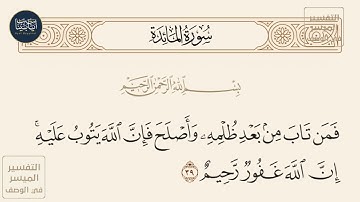 سُورَةُ المَائِدَةِ
التفسير
الميسر
في الوصف
بِسْمِ اللَّهِ الرَّحْمَٰنِ الرَّحِيمِ
فَمَن تَابَ مِنۢ بَعْدِ ظُلْمِهِۦ وَأَصْلَحَ فَإِنَّ اللَّهَ يَتُوبُ عَلَيْهِۚ
إِنَّ اللَّهَ غَفُورٌ رَّحِيمٌ ٣٩
التفسير
الميسر
في الوصف